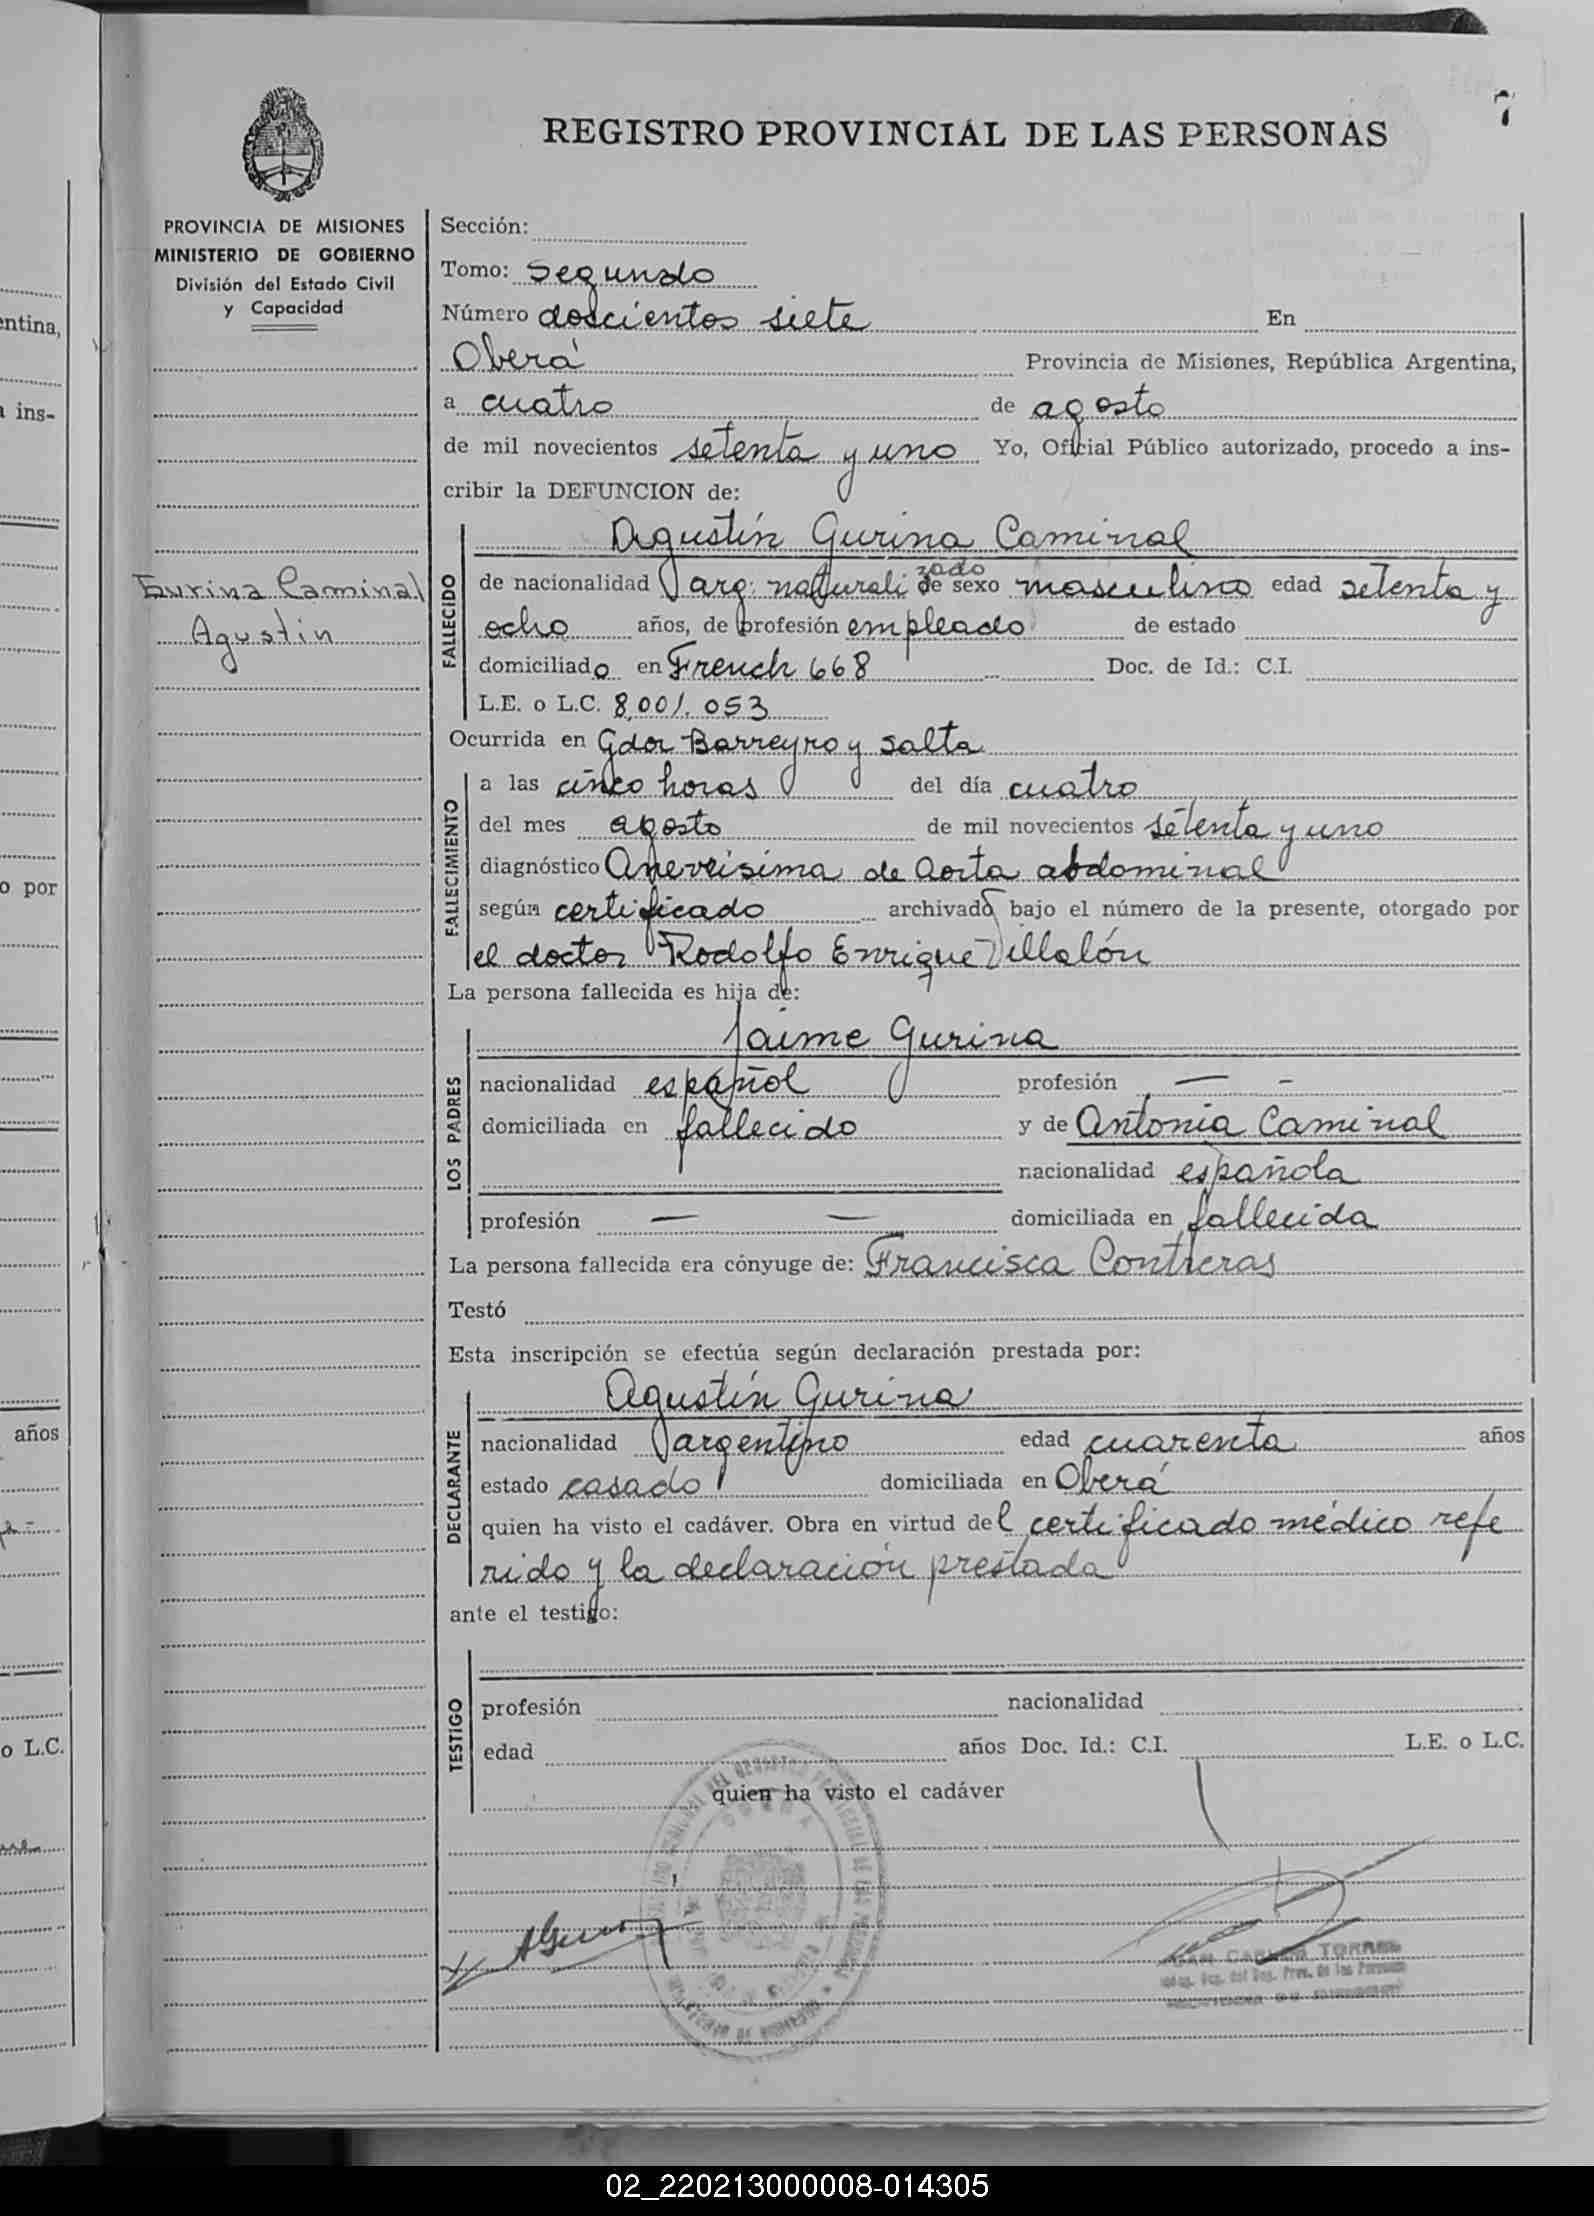 7
REGISTRO PROVINCIAL DE LAS PERSONAS
PROVINCIA DE MISIONES
MINISTERIO DE GOBIERNO
División del Estado Civil
y Capacidad
Gurina Caminal
Agustin
Sección:
Tomo: Segundo
Número doscientos siete En
Oberá Provincia de Misiones, República Argentina,
a cuatro de agosto
de mil novecientos setenta y uno Yo, Oficial Público autorizado, procedo a ins-
cribir la DEFUNCION de:
Agustín Gurina Caminal
FALLECIDO
de nacionalidad arg: naturalizado de sexo masculino edad setenta y
ocho años, de profesión empleado de estado
domiciliado en French 668 Doc. de Id.: C.I.
L.E. o L.C. 8.001.053
Ocurrida en Gdor Barreyro y Salta
FALLECIMIENTO
a las cinco horas del día cuatro
del mes agosto de mil novecientos setenta y uno
diagnóstico de aorta abdominal
según certificado archivado bajo el número de la presente, otorgado por
el doctor Rodolfo Enrique Villalón
La persona fallecida es hija de:
LOS PADRES
Jaime Gurina
nacionalidad español profesión — -
domiciliada en fallecido y de Antonia Caminal
nacionalidad española
profesión — — domiciliada en fallecida
La persona fallecida era cónyuge de: Francisca Contreras
Testó
Esta inscripción se efectúa según declaración prestada por:
DECLARANTE
Agustín Gurina
nacionalidad argentino edad cuarenta años
estado casado domiciliada en Oberá
quien ha visto el cadáver. Obra en virtud del certificado médico refe
rido y la declaración prestada
ante el testigo:
TESTIGO
profesión nacionalidad
edad años Doc. Id.: C.I. L.E. o L.C.
quien ha visto el cadáver
TORRES
entina,
ins-
o por
años
o L.C.
02_220213000008-014305